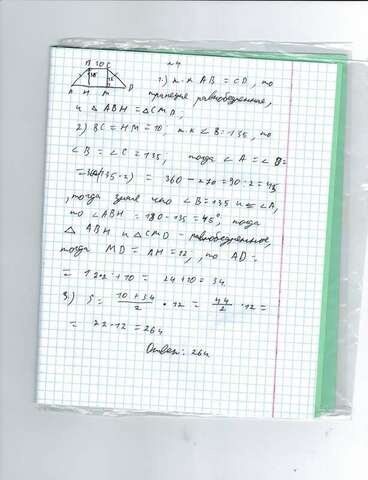 B 10 C
A H M D
№4
1.) т.к AB = CD, то
трапеция равнобедренная,
и △ ABH = △CMD;
2) BC = HM = 10; т.к ∠B = 135, то
∠B = ∠C = 135, тогда ∠A = ∠D =
135·2) = 360 - 270 = 90 : 2 = 45
, тогда зная что ∠B = 135 и ∠A,
то ∠ABH = 180 - 135 = 45°, тогда
△ ABH и △CMD - равнобедренные,
тогда MD = AH = 12, то AD =
= 12·2 + 10 = 24 + 10 = 34.
3.) S = 10 + 34 / 2 · 12 = 44 / 2 · 12 =
= 22 · 12 = 264
Ответ: 264